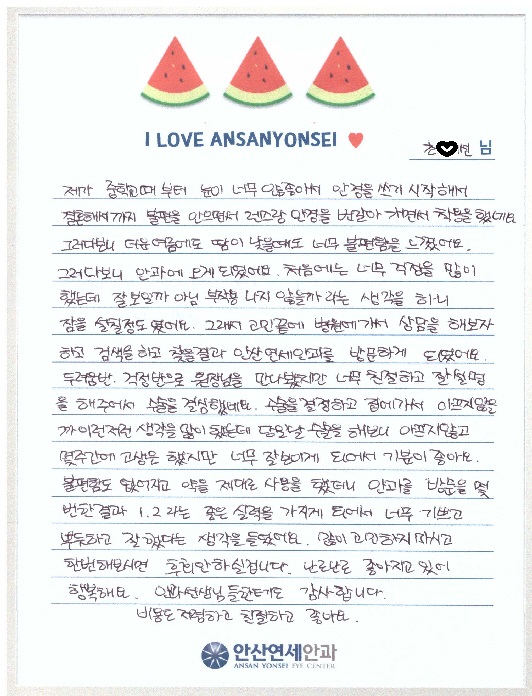 I LOVE ANSANYONSEI
님
제가 중학교때 부터 눈이 너무 안좋아서 안경을 쓰기 시작해서
결혼해서까지 불편을 안으면서 렌즈랑 안경을 번갈아 가면서 착용을 했어요
그러다보니 더운여름에도 땀이 낫을때도 너무 불편함을 느꼈어요.
그러다보니 안과에 오게 되었어요. 처음에는 너무 걱정을 많이
했는데 잘보일까 아님 부작용 나지 않을까 라는 생각을 하니
잠을 설칠정도 였어요. 그래서 고민끝에 병원에가서 상담을 해보자
하고 검색을하고 찾은결과 안산연세안과를 방문하게 되었어요.
두려움반. 걱정반으로 원장님을 만나봤지만 너무 친절하고 잘 설명
을 해주어서 수술을 결심했네요. 수술을 결정하고 집에가서 아프지않을
까 이런저런 생각을 많이 했는데 당일날 수술을 해보니 아프지않고
몇주간에 고생은 했지만 너무 잘보이게 되어서 기분이 좋아요.
불편함도 없어지고 약을 제대로 사용을 했더니 안과를 방문을 몇
번한결과 1.2라는 좋은 실력을 가지게 되어서 너무 기쁘고
뿌듯하고 잘 했다는 생각을 들었어요. 많이 고민하지 마시고
한번해보시면 후회안하실겁니다. 나날로 좋아지고 있어
행복해요. 안과선생님들한테도 감사합니다.
비용도 저렴하고 친절하고 좋아요.
안산연세안과
ANSAN YONSEI EYE CENTER